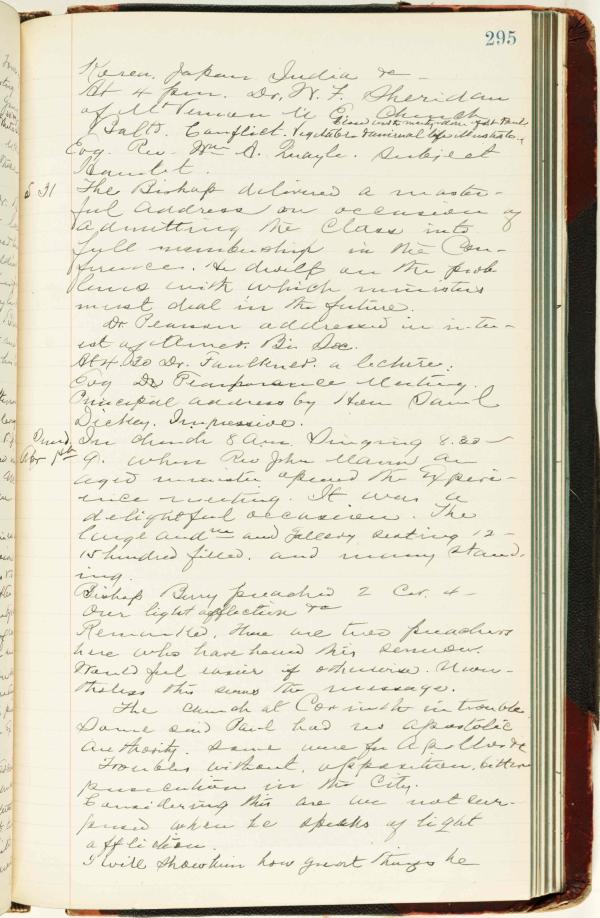 295
Korea, Japan India &c -
At 4 p.m. Dr. W. F. Sheridan
of Mt Vernon M E Church
Balto. Conflict. Vegetable & animal life
Evg. Rev Wm A. Quayle. Subject
Hamlet.
S 31 The Bishop delivered a master-
ful address on occasion of
admitting the class into
full membership in the Con-
ferences. He dwelt on the prob
lems with which ministers
must deal in the future.
Dr Pearson addressed in inte-
est of Amer. Bi. Soc.
At 4.30 Dr. Faulkner. a lecture.
Evg Temperance Meeting.
Principal address by Hon Saml
Dickey. Impressive.
Sund. In church 8 A.m. Singing 8.30-
Apr 1st 9. when Rev John Mann an
aged minister opened the Experi-
ence meeting. It was a
delightful occasion. The
large audm and Gallery seating 12-
15 hundred filled. and many stand-
ing.
Bishop Berry preached 2 Cor. 4-
Our light affliction &c
Remarked, there are two preachers
here who have heard this sermon.
Would feel easier if otherwise. Never-
theless this seems the message.
The church at Corinth in trouble.
Some said Paul had no apostolic
authority. Some were for Apollos &c
Troubles without, opposition, bitter
persecution in the City.
Considering this are we not sur-
prised when he speaks of light
affliction.
I will show him how great things he